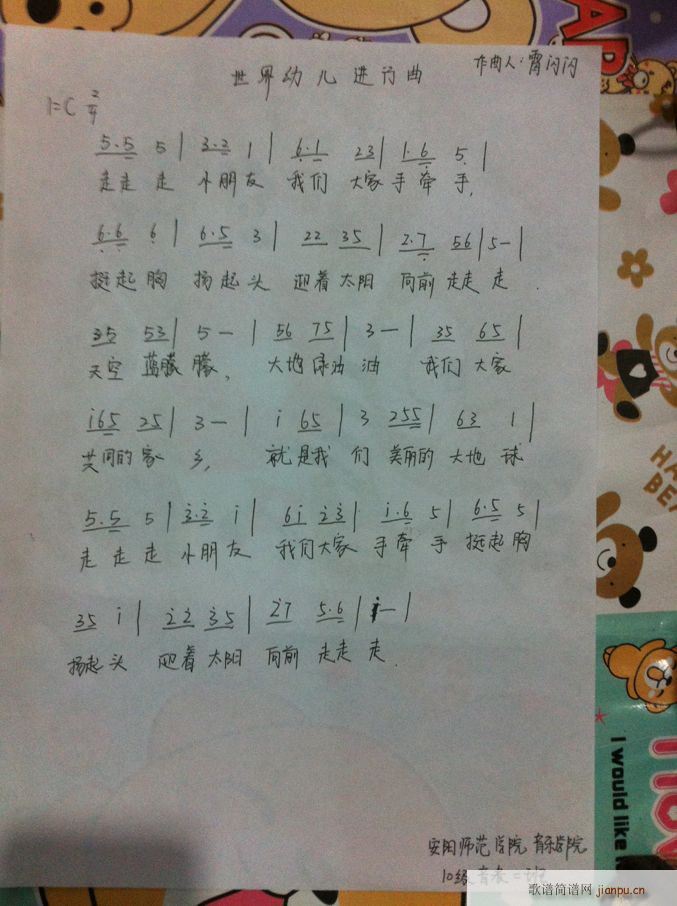 世界幼儿进行曲 作曲人:霄闪闪
1=C 2/4
5.5 5 | 3.2 1 | 6.1 23 | 1.6 5 |
走走 走 小朋友 我们 大家 手牵 手,
6.6 6 | 6.5 3 | 22 35 | 2.7 56 | 5 — |
挺起 胸 扬起 头 迎着 太阳 向前 走走 走.
35 53 | 5 — | 56 75 | 3 — | 35 65 |
天空 蓝朦 朦, 大地 绿油 油 我们 大家
i65 25 | 3 — | i 65 | 3 255 | 63 1 |
共同的 家 乡, 就 是我 们 美丽的 大地 球
5.5 5 | 3.2 i | 6i 23 | i.6 5 | 6.5 5 |
走 走 走 小朋友 我们大家 手牵 手 挺起 胸
35 i | 22 35 | 27 5.6 | i — |
扬起 头 迎着 太阳 向前 走走 走.
安阳师范学院 音乐学院
10级
歌谱简谱网 jianpu.cn
HA
BEA
I would like